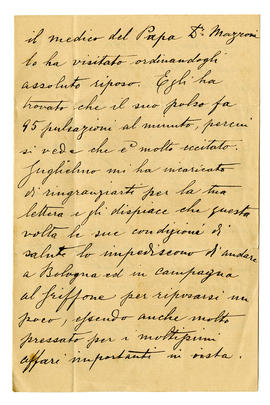 il medico del Papa Dr. Mazzoni
lo ha visitato ordinandogli
assoluto riposo. Egli ha
trovato che il suo polso fa
95 pulsazioni al minuto, perciò
si vede che è molto eccitato.
Guglielmo mi ha incaricato
di ringraziarti per la tua
lettera e gli dispiace che questa
volta le sue condizioni di
salute lo impediscono di andare
a Bologna ed in campagna
al Griffone per riposarsi un
poco, essendo anche molto
pressato per i moltissimi
affari importanti in vista.